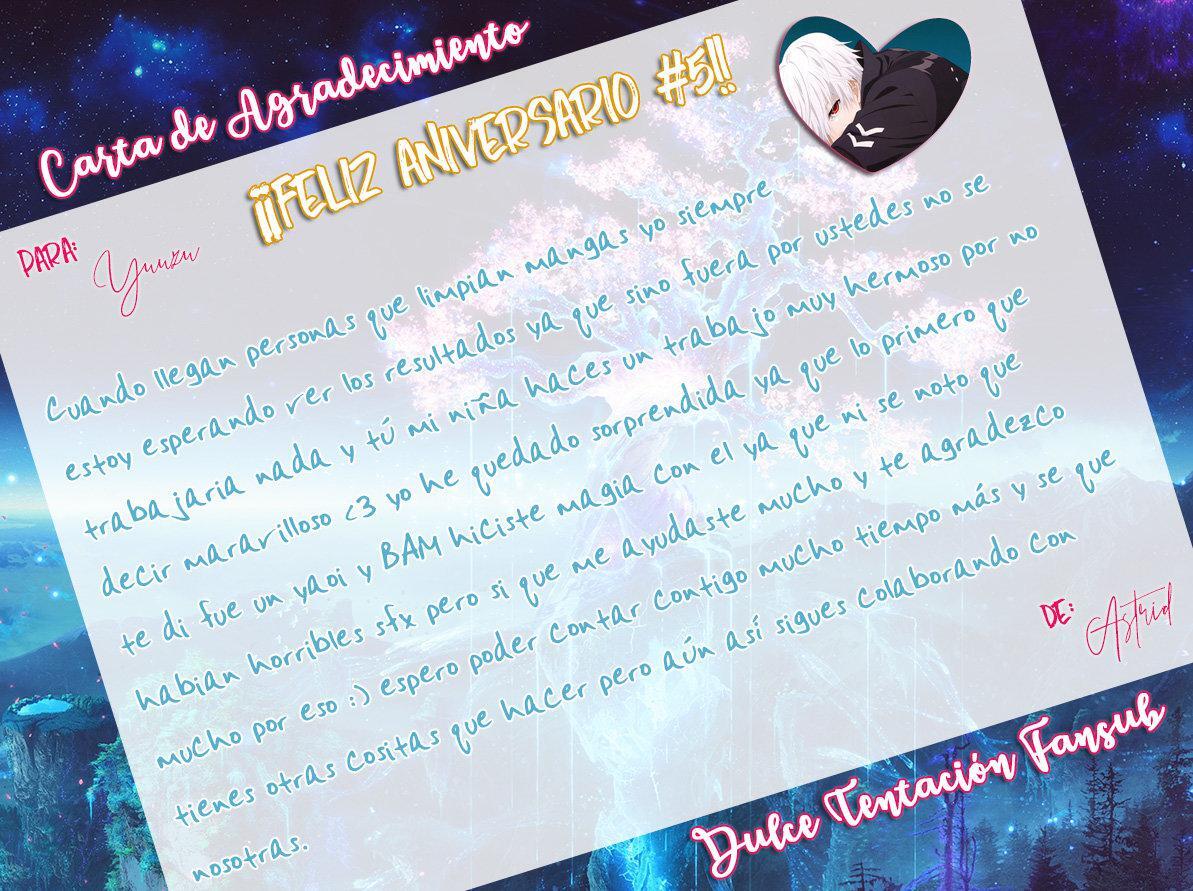 Carta de Agradecimiento
¡¡FELIZ ANIVERSARIO #5!!
PARA: Yuuzu
Cuando llegan personas que limpian mangas yo siempre
estoy esperando ver los resultados ya que sino fuera por ustedes no se
trabajaria nada y tú mi niña haces un trabajo muy hermoso por no
decir maravilloso <3 yo he quedado sorprendida ya que lo primero que
te di fue un yaoi y BAM hiciste magia con el ya que ni se noto que
habian horribles sfx pero si que me ayudaste mucho y te agradezco
mucho por eso :) espero poder contar contigo mucho tiempo más y se que
tienes otras cositas que hacer pero aún así sigues colaborando con
nosotras.
DE: Astrid
Dulce Tentación Fansub